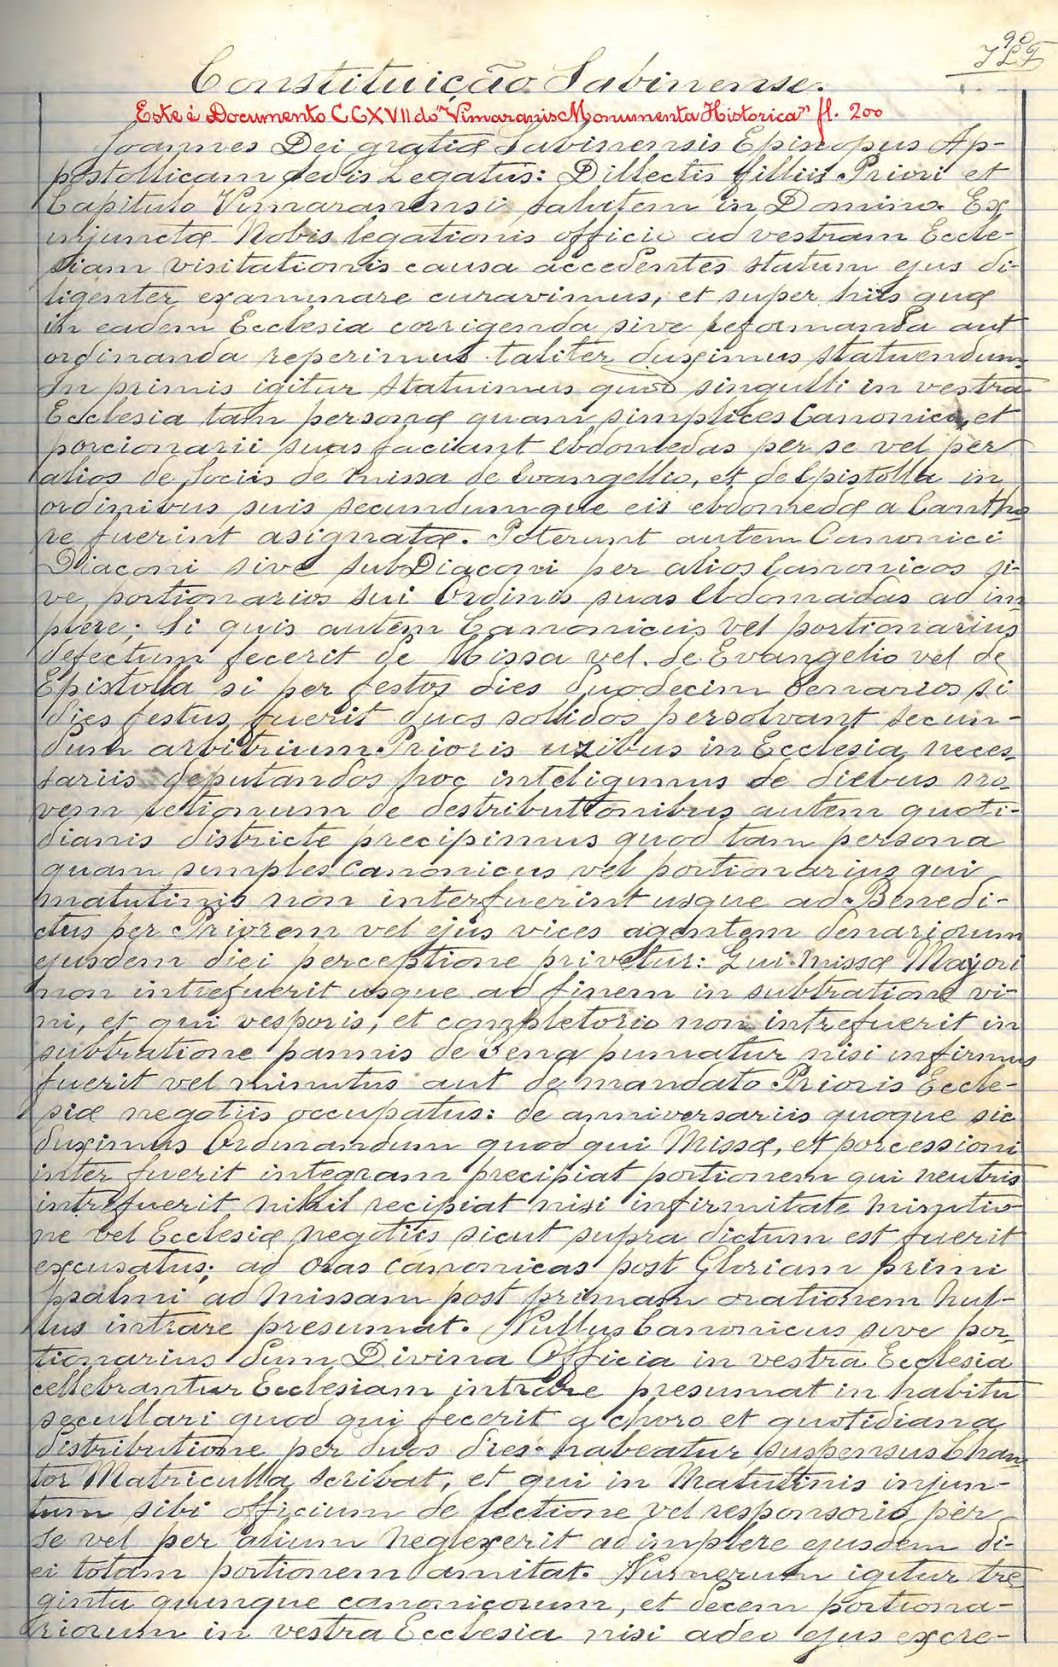 90
Constituição Sabinense.
Este é Documento CCXVII do "Vimaranis Monumenta Historica" fl. 200
Joannes Dei gratiæ Sabinensis Episcopus Ap-
postollicam sedis Legatus: Dillectis filliis Priori et
Capitulo Vimaranensi salutem in Domino. Ex
injunctæ Nobis legationis officio ad vestram Eccle-
siam visitationis causa accedentes statum ejus di-
ligenter examinare curavimus, et super hiis quæ
in eadem Ecclesia corrigenda sive reformanda aut
ordinanda reperimus taliter duximus statuendum.
In primis igitur statuimus quod singulli in vestra
Ecclesia tam personæ quam simplices Canonici, et
porcionarii suas faciant ebdomedas per se vel per
alios de sociis de missa de Evangellio, et de Epistolla in
ordinibus suis secundumque eis ebdomedæ a Cantho
re fuerint asignatæ. Poterunt autem Canonici
Diaconi sive subDiaconi per alios Canonicos si-
ve portionarios sui Ordinis suas ebdomadas adim
plere; Si quis autem Canonicus vel portionarius
defectum fecerit de Missa vel de Evangelio vel de
Epistolla si per festos dies duodecim denarios si
dies festus fuerit duos solidos persolvant secun-
dum arbitrium Prioris uzibus in Ecclesia neces
sariis deputandos hoc inteligimus de diebus no-
vem letionum de destributtonibus autem quoti-
dianis districte precipimus quod tam persona
quam simples Canonicus vel portionarius qui
matutinis non interfuerint usque ad Benedi-
ctus per Priorem vel ejus vices agentem denariorum
ejusdem diei perceptione privetur: Qui missæ Majori
non intrefuerit usque ad finem in subtratione vi-
ni, et qui vesporis, et completorio non intrefuerit in
subtratione pannis de Sena punatur nisi infirmus
fuerit vel minutus aut de mandato Prioris Eccle-
siæ negotiis occupatus: de anniversariis quoque sic
duximus Ordinandum quod qui Missæ, et porcessioni
inter fuerit integram precipiat portionem qui neutris
intrefuerit nihil recipiat nisi infirmitate minutio
ne vel Ecclesiæ negotiis sicut supra dictum est fuerit
excusatus; ad oras canonicas post Gloriam primi
psalmi ad missam post primam orationem nul-
lus intrare presumat. Nullus Canonicus sive por-
tionarius dum Divina Officia in vestra Ecclesia
cellebrantur Ecclesiam intrare presumat in habitu
secullari quod qui fecerit a choro et quotidiana
distributione per duos dies habeatur suspensus Chan
tor Matriculla scribat, et qui in Matutinis injun-
tum sibi officium de lectione vel responsorio per
se vel per alium neglexerit adimplere ejusdem di-
ei totam portionem amitat. Numerum igitur tre
ginta quinque canonicorum, et decem portiona-
riorum in vestra Ecclesia nisi adeo ejus excre-